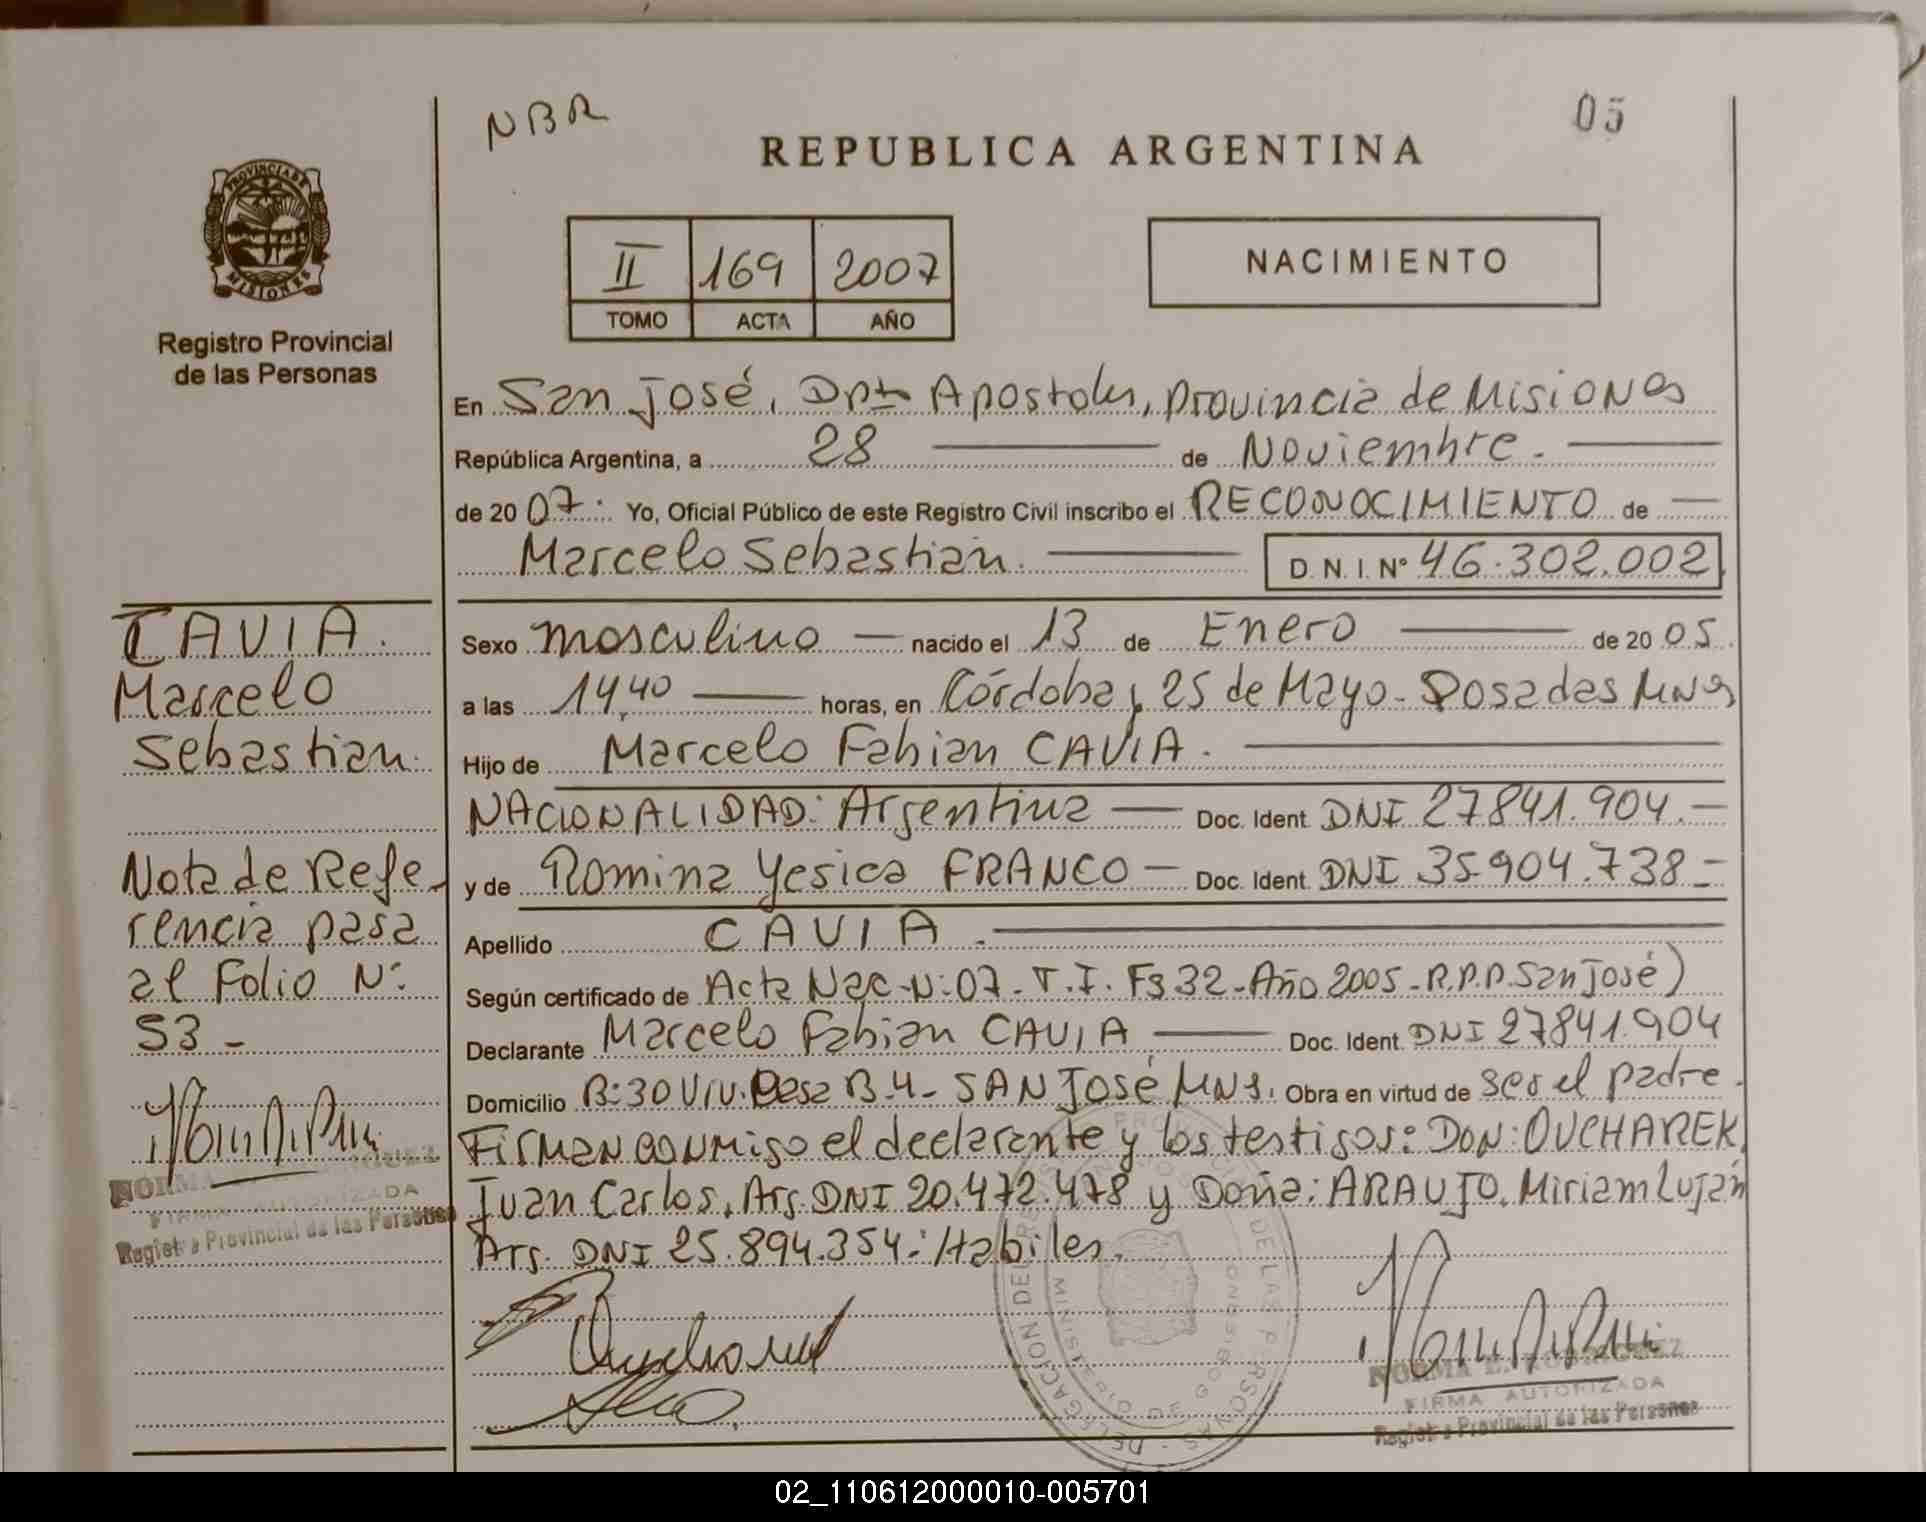 NBR
05
REPUBLICA ARGENTINA
PROVINCIA DE
MISIONES
Registro Provincial
de las Personas
II 169 2007
TOMO ACTA AÑO
NACIMIENTO
En San José, Dpto Apostoles, Provincia de Misiones
República Argentina, a 28 de Noviembre.
de 2007. Yo, Oficial Público de este Registro Civil inscribo el RECONOCIMIENTO de
Marcelo Sebastian. D.N.I. Nº 46.302.002
CAVIA.
Marcelo
Sebastian.
Sexo masculino nacido el 13 de Enero de 2005.
a las 14,40 horas, en Córdoba y 25 de Mayo - Posadas Mnes
Hijo de Marcelo Fabian CAVIA.
NACIONALIDAD: Argentina Doc. Ident. DNI 27841.904.
y de Romina Yesica FRANCO Doc. Ident. DNI 35.904.738
Apellido CAVIA.
Según certificado de Acta Nac. N: 07. T.I. Fs 32 - Año 2005 - R.P.P. San José)
Declarante Marcelo Fabian CAVIA Doc. Ident. DNI 27841.904
Domicilio B: 30 Viv. B.4 - SAN José MNS. Obra en virtud de ser el padre.
Firman conmigo el declarante y los testigos: DON: OUCHAREK,
Juan Carlos, Arg. DNI 20.472.478 y Doña: ARAUJO, Miriam Luján
Arg. DNI 25.894.354: Habiles.
Nota de Refe-
rencia pasa
al Folio N:
53 -
NORMA
FIRMA AUTORIZADA
Registro Provincial de las Personas
NORMA E. RODRIGUEZ
FIRMA AUTORIZADA
Registro Provincial de las Personas
02_110612000010-005701